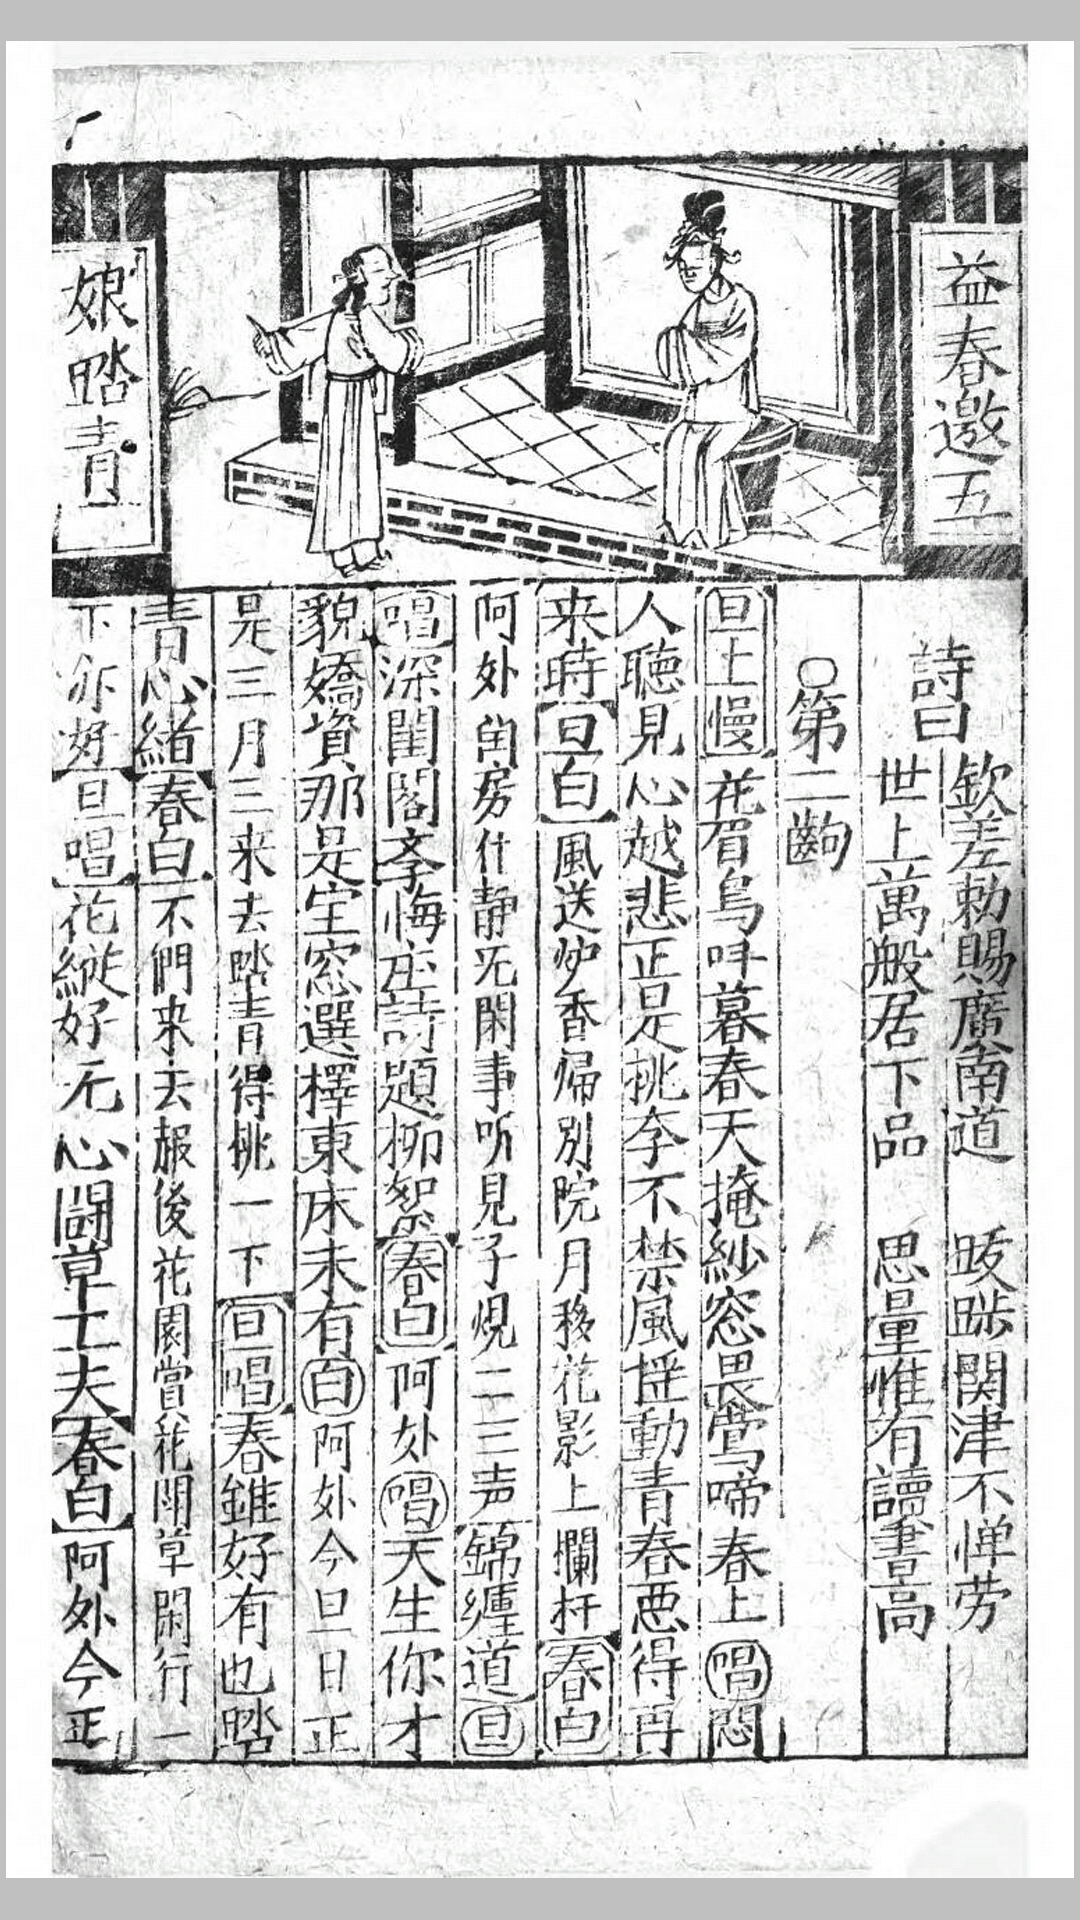 益春邀五
娘踏青
詩曰
欽差勅賜廣南道 跋踄関津不惮劳
世上萬般居下品 思量惟有讀書高
○第二齣
旦上慢花眉鳥呌暮春天掩紗窓畏鶯啼春上唱悶
人聽見心越悲正是桃李不禁風揺動青春悪得再
来時旦白風送炉香歸別院月移花影上欄杆春白
阿妳閨房什静无閑事听見子規二三声錦纏道旦
唱深閨閣季悔庄詩題柳絮春白阿妳唱天生你才
貌嬌資那是宝窓選擇東床未有白阿妳今旦日正
是三月三来去踏青得桃一下旦唱春雖好有也踏
青心緒春白不們来去赧後花園賞花鬪草閑行一
下亦好旦唱花縱好无心鬪草工夫春白阿妳今正